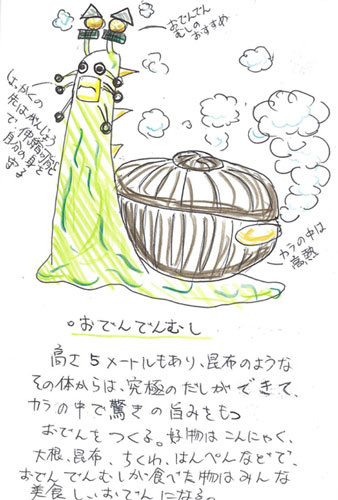 おでんでん
むしの
おすすめ
しょっかくの
先はがんじょう
で、伸縮可能
自分の身を
守る
カラの中は
高熱
おでんでんむし
高さ5メートルもあり、昆布のような
その体からは、究極のだしができて、
カラの中で驚きの旨みをもつ
おでんをつくる。好物はこんにゃく、
大根、昆布、ちくわ、はんぺんなどで、
おでんでんむしが食べた物はみんな
美食しいおでんになる。